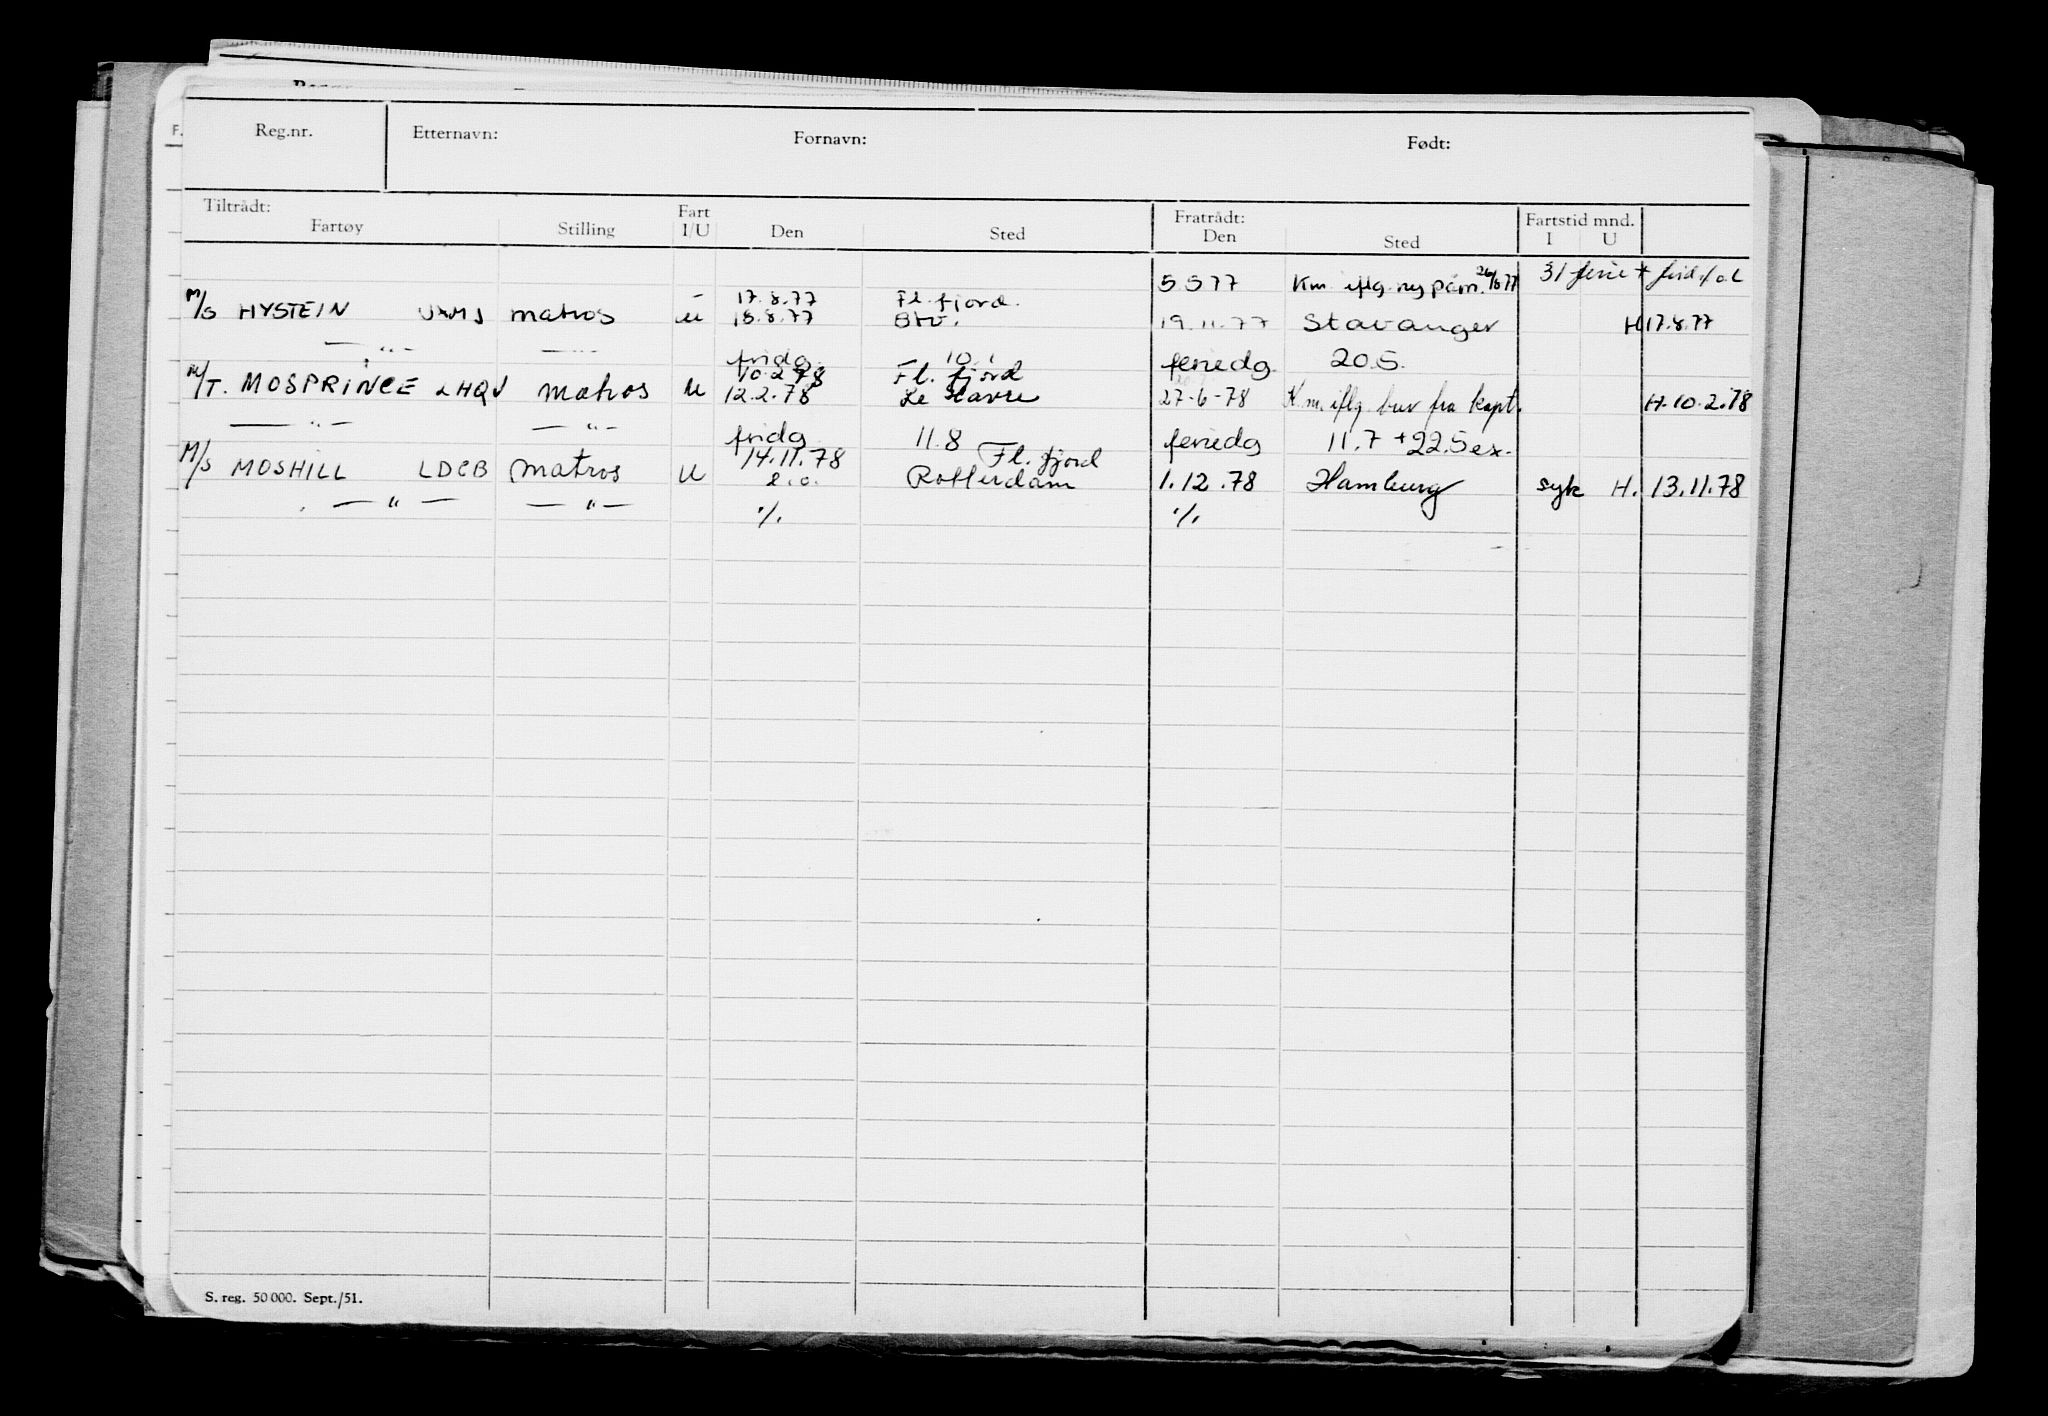 Reg.nr. Etternavn: Fornavn: Født:
Tiltrådt: Fratrådt: Fartstid mnd.
Fartøy Stilling Fart I/U Den Sted Den Sted I U
5 5 77 Km iflg. ny påm. 26/8 77 31 ferie + frid. f.o.l
17.8.77 Fl. fjord.
M/S HYSTEIN matros u 18.8.77 Btv. 19.11.77 Stavanger H 17.8.77
— " — — " — fridg. 10.1 feriedg. 20.5.
10.2.78 Fl. fjord
M/T. MOSPRINCE LHQV matros u 12.2.78 Le Havre 27-6-78 K.m. iflg. brev fra kapt. H. 10.2.78
— " — — " — fridg 11.8 feriedg 11.7 + 22.5 ex.
14.11.78 Fl. fjord
M/S MOSHILL LDCB matros u e.o. Rotterdam 1.12.78 Hamburg syk H. 13.11.78
— " — — " — ./. ./.
S. reg. 50 000. Sept./51.